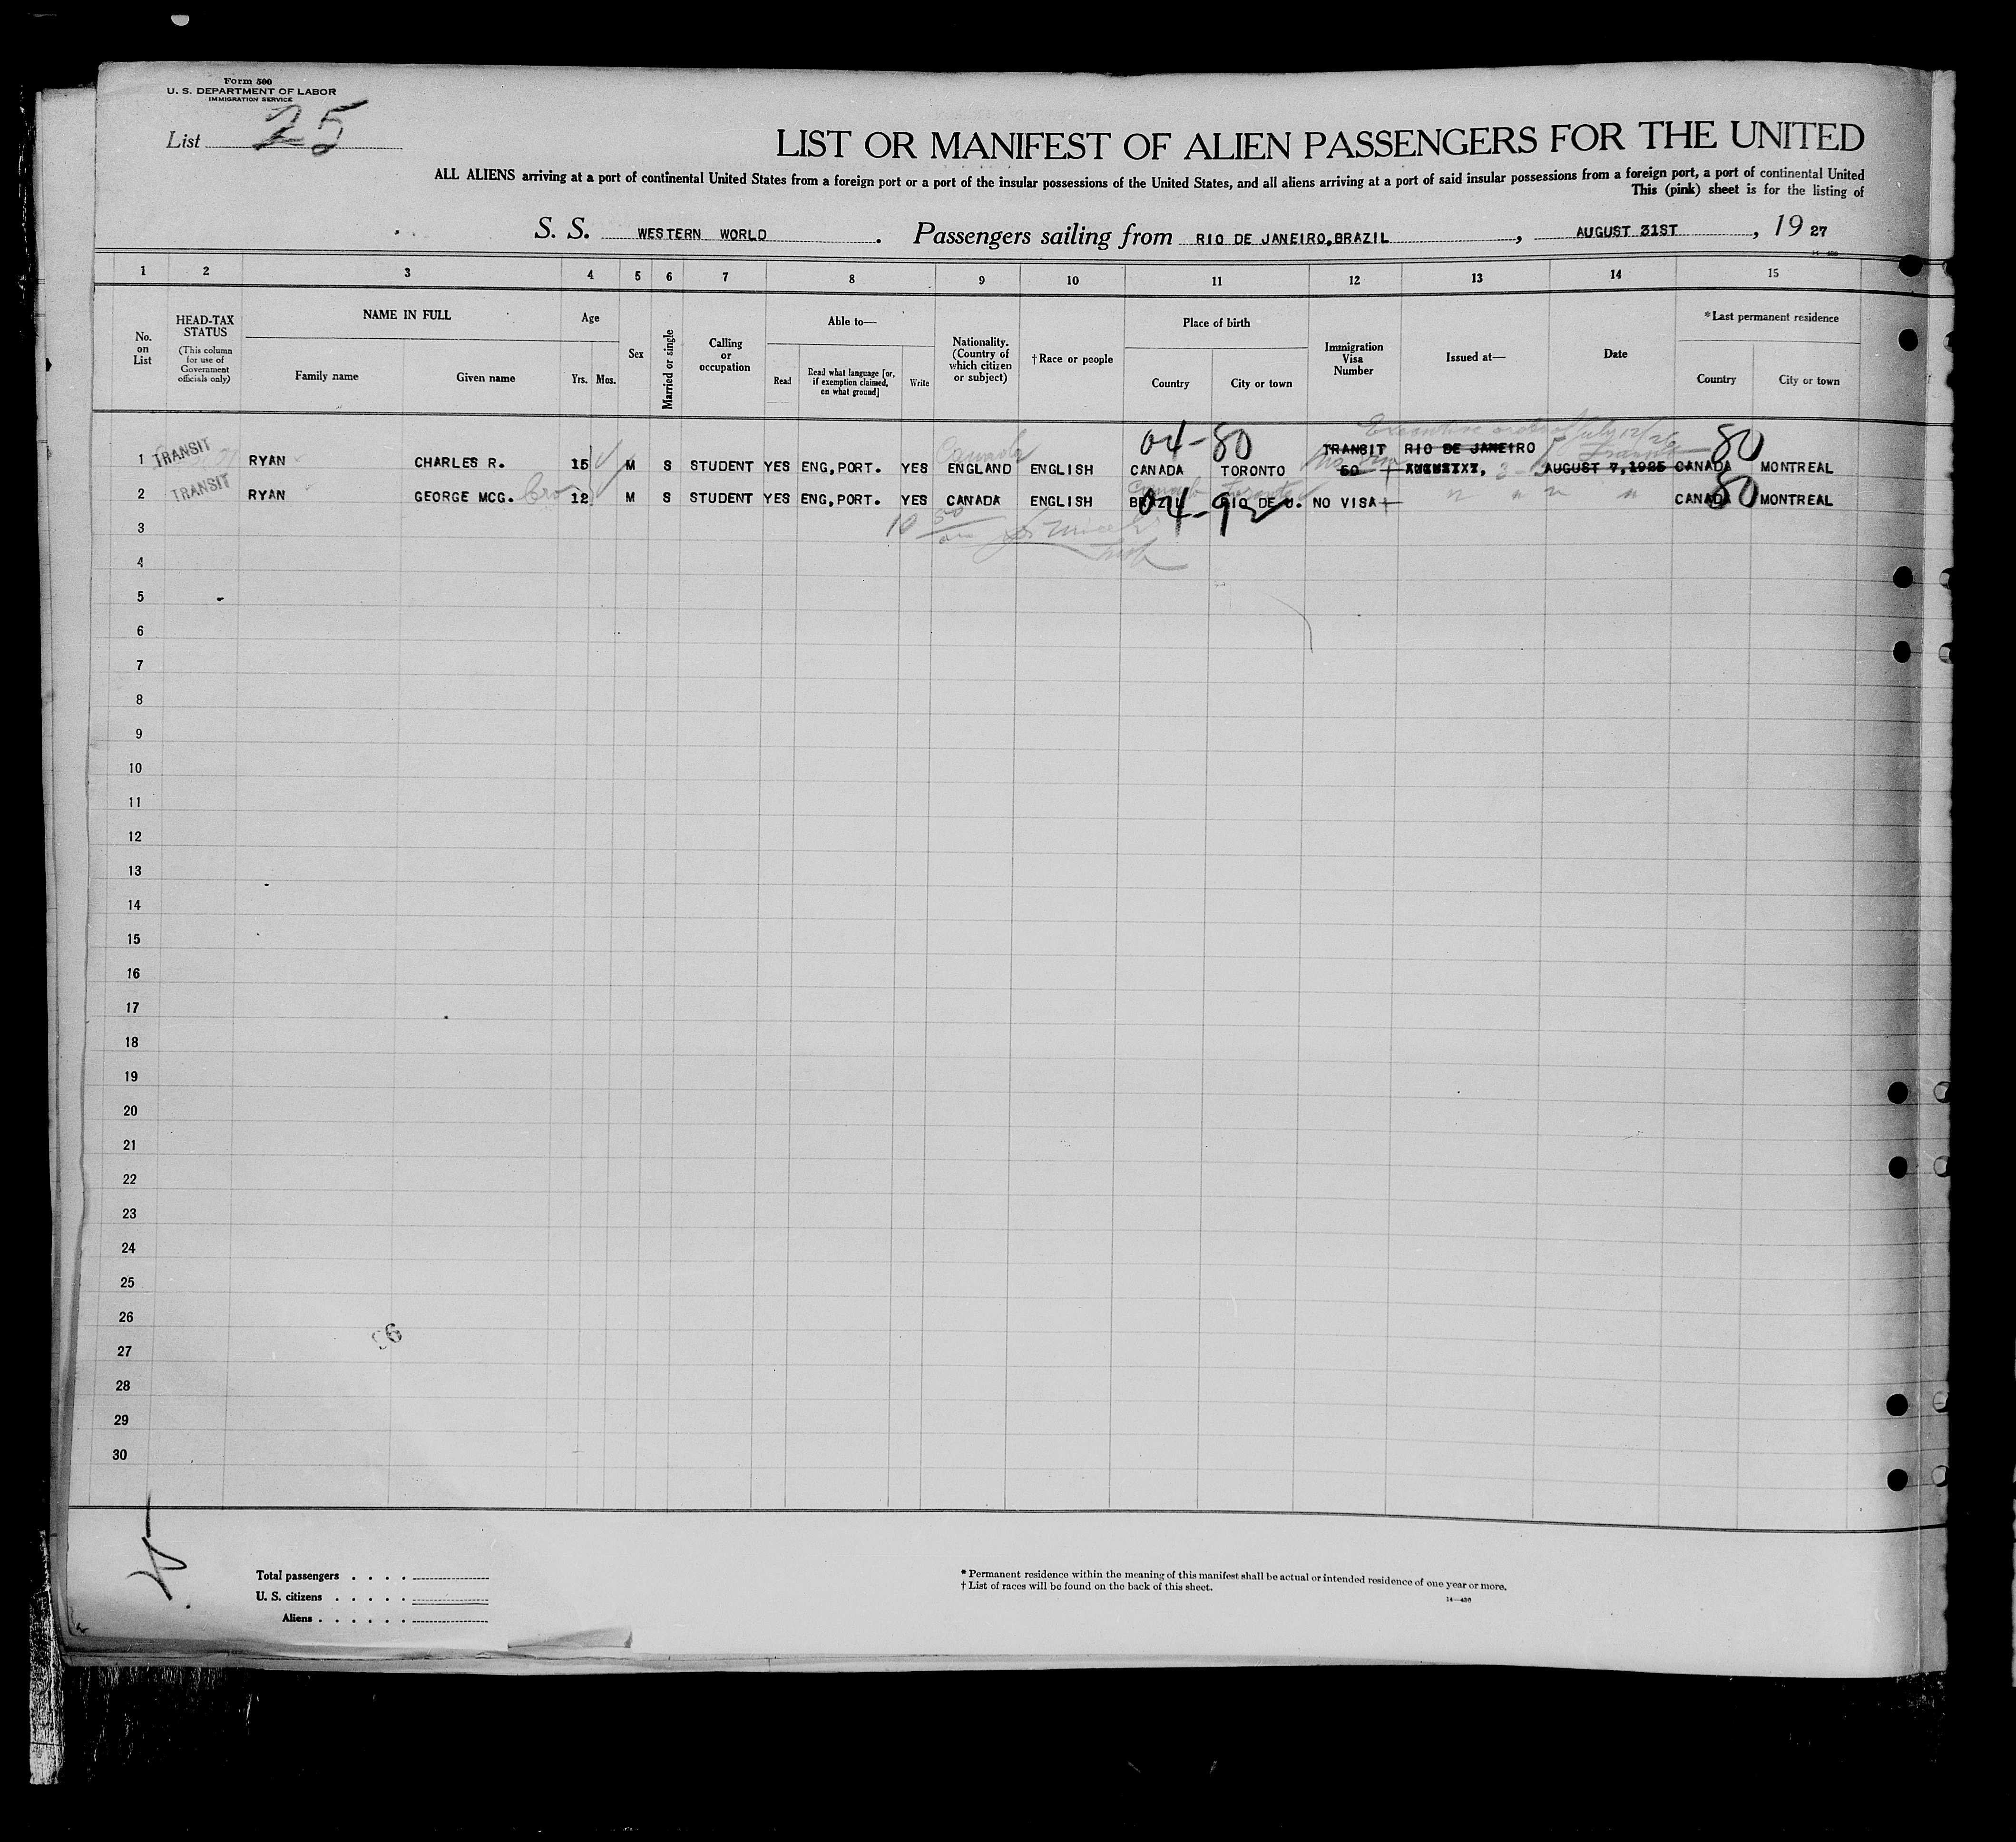 Form 500
U. S. DEPARTMENT OF LABOR
IMMIGRATION SERVICE
List 25
LIST OR MANIFEST OF ALIEN PASSENGERS FOR THE UNITED
ALL ALIENS arriving at a port of continental United States from a foreign port or a port of the insular possessions of the United States, and all aliens arriving at a port of said insular possessions from a foreign port, a port of continental United
This (pink) sheet is for the listing of
S. S. WESTERN WORLD. Passengers sailing from RIO DE JANEIRO,BRAZIL, AUGUST 31ST, 19 27
1 2 3 4 5 6 7 8 9 10 11 12 13 14 15
No. on List
HEAD-TAX STATUS (This column for use of Government officials only)
NAME IN FULL
Family name Given name
Age
Yrs. Mos.
Sex
Married or single
Calling or occupation
Able to—
Read
Read what language [or, if exemption claimed, on what ground]
Write
Nationality. (Country of which citizen or subject)
†Race or people
Place of birth
Country City or town
Immigration Visa Number
Issued at—
Date
*Last permanent residence
Country City or town
Executive order of July 12/26
04-80 80
1 TRANSIT RYAN CHARLES R. 15 M S STUDENT YES ENG,PORT. YES Canada ENGLAND ENGLISH CANADA TORONTO TRANSIT 50 RIO DE JANEIRO AUGUST 7,1925 CANADA MONTREAL
2 TRANSIT RYAN GEORGE MCG. bro 12 M S STUDENT YES ENG,PORT. YES CANADA ENGLISH Canada Toronto BRAZIL RIO DE J. NO VISA " " " " CANADA 80 MONTREAL
04-92
3
4
5
6
7
8
9
10
11
12
13
14
15
16
17
18
19
20
21
22
23
24
25
26
96
27
28
29
30
Total passengers . . . .
U. S. citizens . . . . .
Aliens . . . . . .
* Permanent residence within the meaning of this manifest shall be actual or intended residence of one year or more.
† List of races will be found on the back of this sheet.
14—430